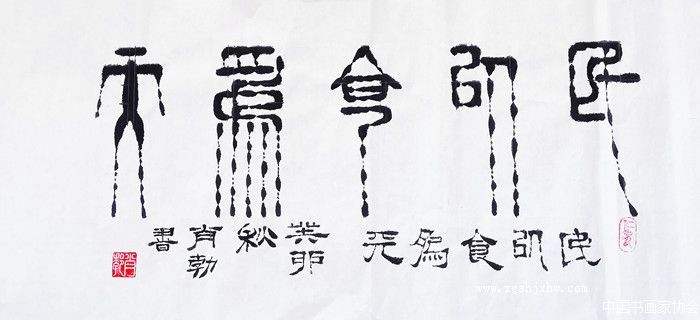 民以食為天
民以食為天 癸卯 秋 肖勃 書
www.zgshjxhw.com
中国书画家协会